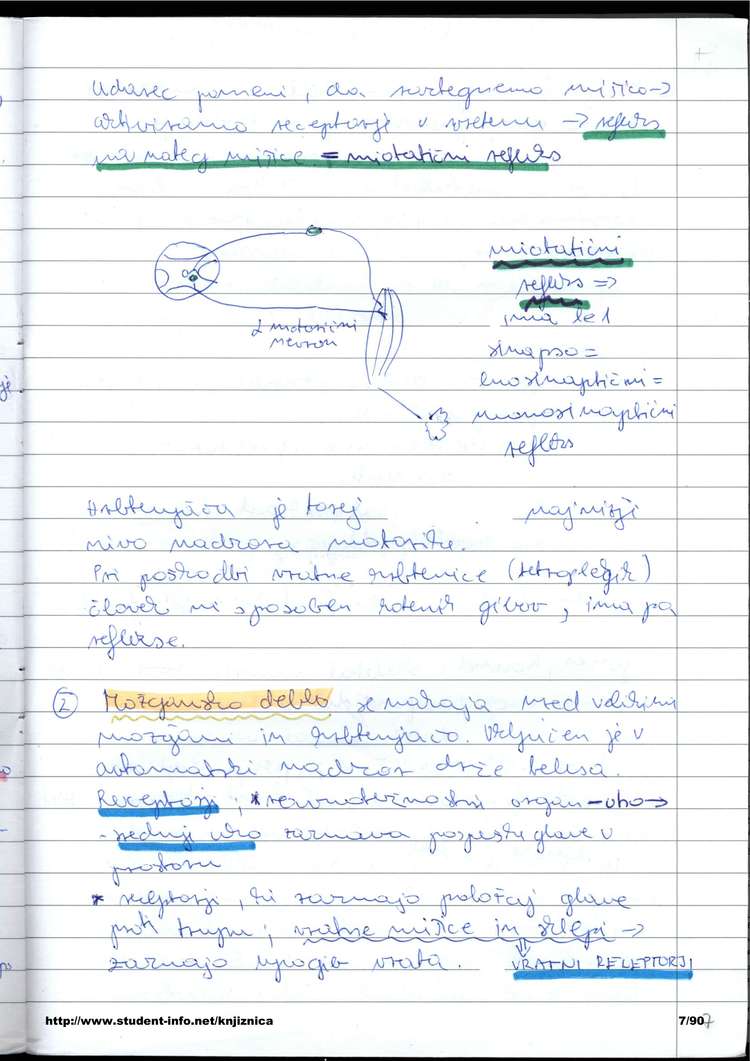 Udarec pomeni, da raztegnemo mišico →
aktiviramo receptorje v vretenu → refleks
na nateg mišice = miotatični refleks
miotatični
refleks =>
ima le 1
sinapso =
enosinaptični =
monosinaptični
refleks
α motorični
nevron
Hrbtenjača je torej najnižji
nivo nadzora motorike.
Pri poškodbi vratne hrbtenice (tetraplegik)
človek ni sposoben hotenih gibov, ima pa
reflekse.
2 Možgansko deblo se nahaja med velikimi
možgani in hrbtenjačo. Vključen je v
avtomatski nadzor drže telesa.
Receptorji; * ravnotežnostni organ - uho →
- srednje uho zaznava pospeške glave v
prostoru
* receptorji, ki zaznajo položaj glave
proti trupu; vratne mišice in sklepi →
zaznajo upogib vratu. VRATNI RECEPTORJI
http://www.student-info.net/knjiznica
7/90
7